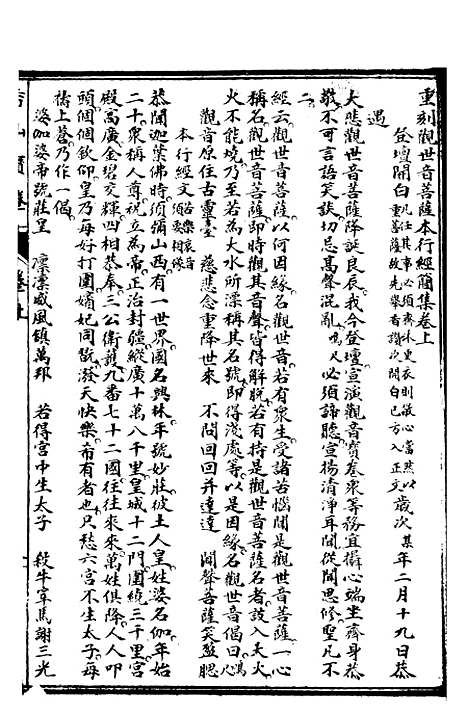 重刻觀世音菩薩本行經簡集卷上
登壇開白凡任其事必須齋沐更衣則敬心當然以
重菩薩故先舉香讚次開白已方入正文歲次某年二月十九日恭
遇
大悲觀世音菩薩降誕良辰我今登壇宣演觀音寶卷衆等務宜攝心端坐齊身恭
敬不可言語笑談切忌高聲混亂鳴尺必須諦聽宣揚清淨耳聞從聞思修聖凡不
二
經云觀世音菩薩以何因緣名觀世音若有衆生受諸苦惱聞是觀世音菩薩一心
稱名觀世音菩薩即時觀其音聲皆得解脫若有持是觀世音菩薩名者設入大火
火不能燒乃至若為大水所漂稱其名號即得淺處等以是因緣名觀世音偈曰鳴尺
觀音原住古靈臺　慈悲念重降世來　不問回回并達達　聞聲菩薩笑盈腮
本行經文
恭聞迦葉佛時須彌山西有一世界國名興林年號妙莊彼土人皇姓婆名伽年始
二十衆稱人尊祝立為帝正治封疆縱廣十萬八千里皇城十二門圍繞三千里宮
殿高廣金碧交輝四相恭奉三公衛護九番七十二國往往來來萬姓俱降人人叩
頭個個欽仰皇乃每好打圍嬪妃同翫潑天快樂希有者也只愁六宮不生太子每
禱上蒼乃作一偈
婆伽婆帝號莊皇　凛凛威風鎮萬邦　若得宮中生太子　殺牛宰馬謝三光